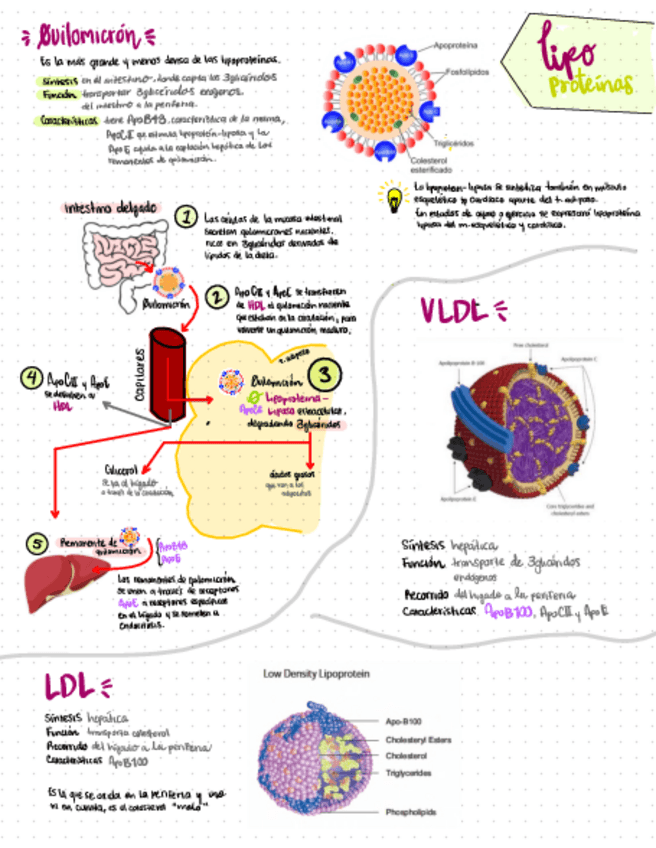 Quilomicrón
lipo
proteínas
Es la más grande y menos densa de las lipoproteínas.
Síntesis en el intestino, donde capta los 3glicéridos
Función transportar 3glicéridos exógenos
del intestino a la periferia.
Características tiene ApoB48, característica de la misma,
ApoCII que estimula lipoprotein-lipasa y la
ApoE ayuda a la captación hepática de los
remanentes de quilomicrón.
Apoproteína
Fosfolípidos
Triglicéridos
Colesterol
esterificado
La lipoprotein-lipasa se sintetiza también en músculo
esquelético y cardíaco aparte del t. adiposo.
En estados de ayuno o ejercicio se expresará lipoproteína
lipasa del m. esquelético y cardíaco.
Intestino delgado
1
Las células de la mucosa intestinal
secretan quilomicrones nacientes,
ricos en 3glicéridos derivados de
lípidos de la dieta.
Quilomicrón
2
ApoCII y ApoE se transfieren
de HDL al quilomicrón naciente
que estaban en la circulación, para
volverse un quilomicrón maduro.
Capilares
t. adiposo
Quilomicrón
3
Lipoproteína-
ApoCII lipasa extracelular,
degradando 3glicéridos
4
ApoCII y ApoE
se devuelven a
HDL
Glicerol
se va al hígado
a través de la circulación
ácidos grasos
que van a los
adipocitos
5
Remanente de
quilomicrón
ApoB48
ApoE
Los remanentes de quilomicrón
se unen a través de receptores
ApoE a receptores específicos
en el hígado y se someten a
endocitosis.
VLDL
Free cholesterol
Apolipoprotein B-100
Apolipoprotein C
Apolipoprotein E
Core triglycerides and
cholesteryl esters
Síntesis hepática
Función transporte de 3glicéridos
endógenos
Recorrido del hígado a la periferia
Características ApoB100, ApoCII y ApoE
LDL
Síntesis hepática
Función transporta colesterol
Recorrido del hígado a la periferia
Características ApoB100
Es la que se queda en la periferia y
es el colesterol "malo"
Low Density Lipoprotein
Apo-B100
Cholesteryl Esters
Cholesterol
Triglycerides
Phospholipids